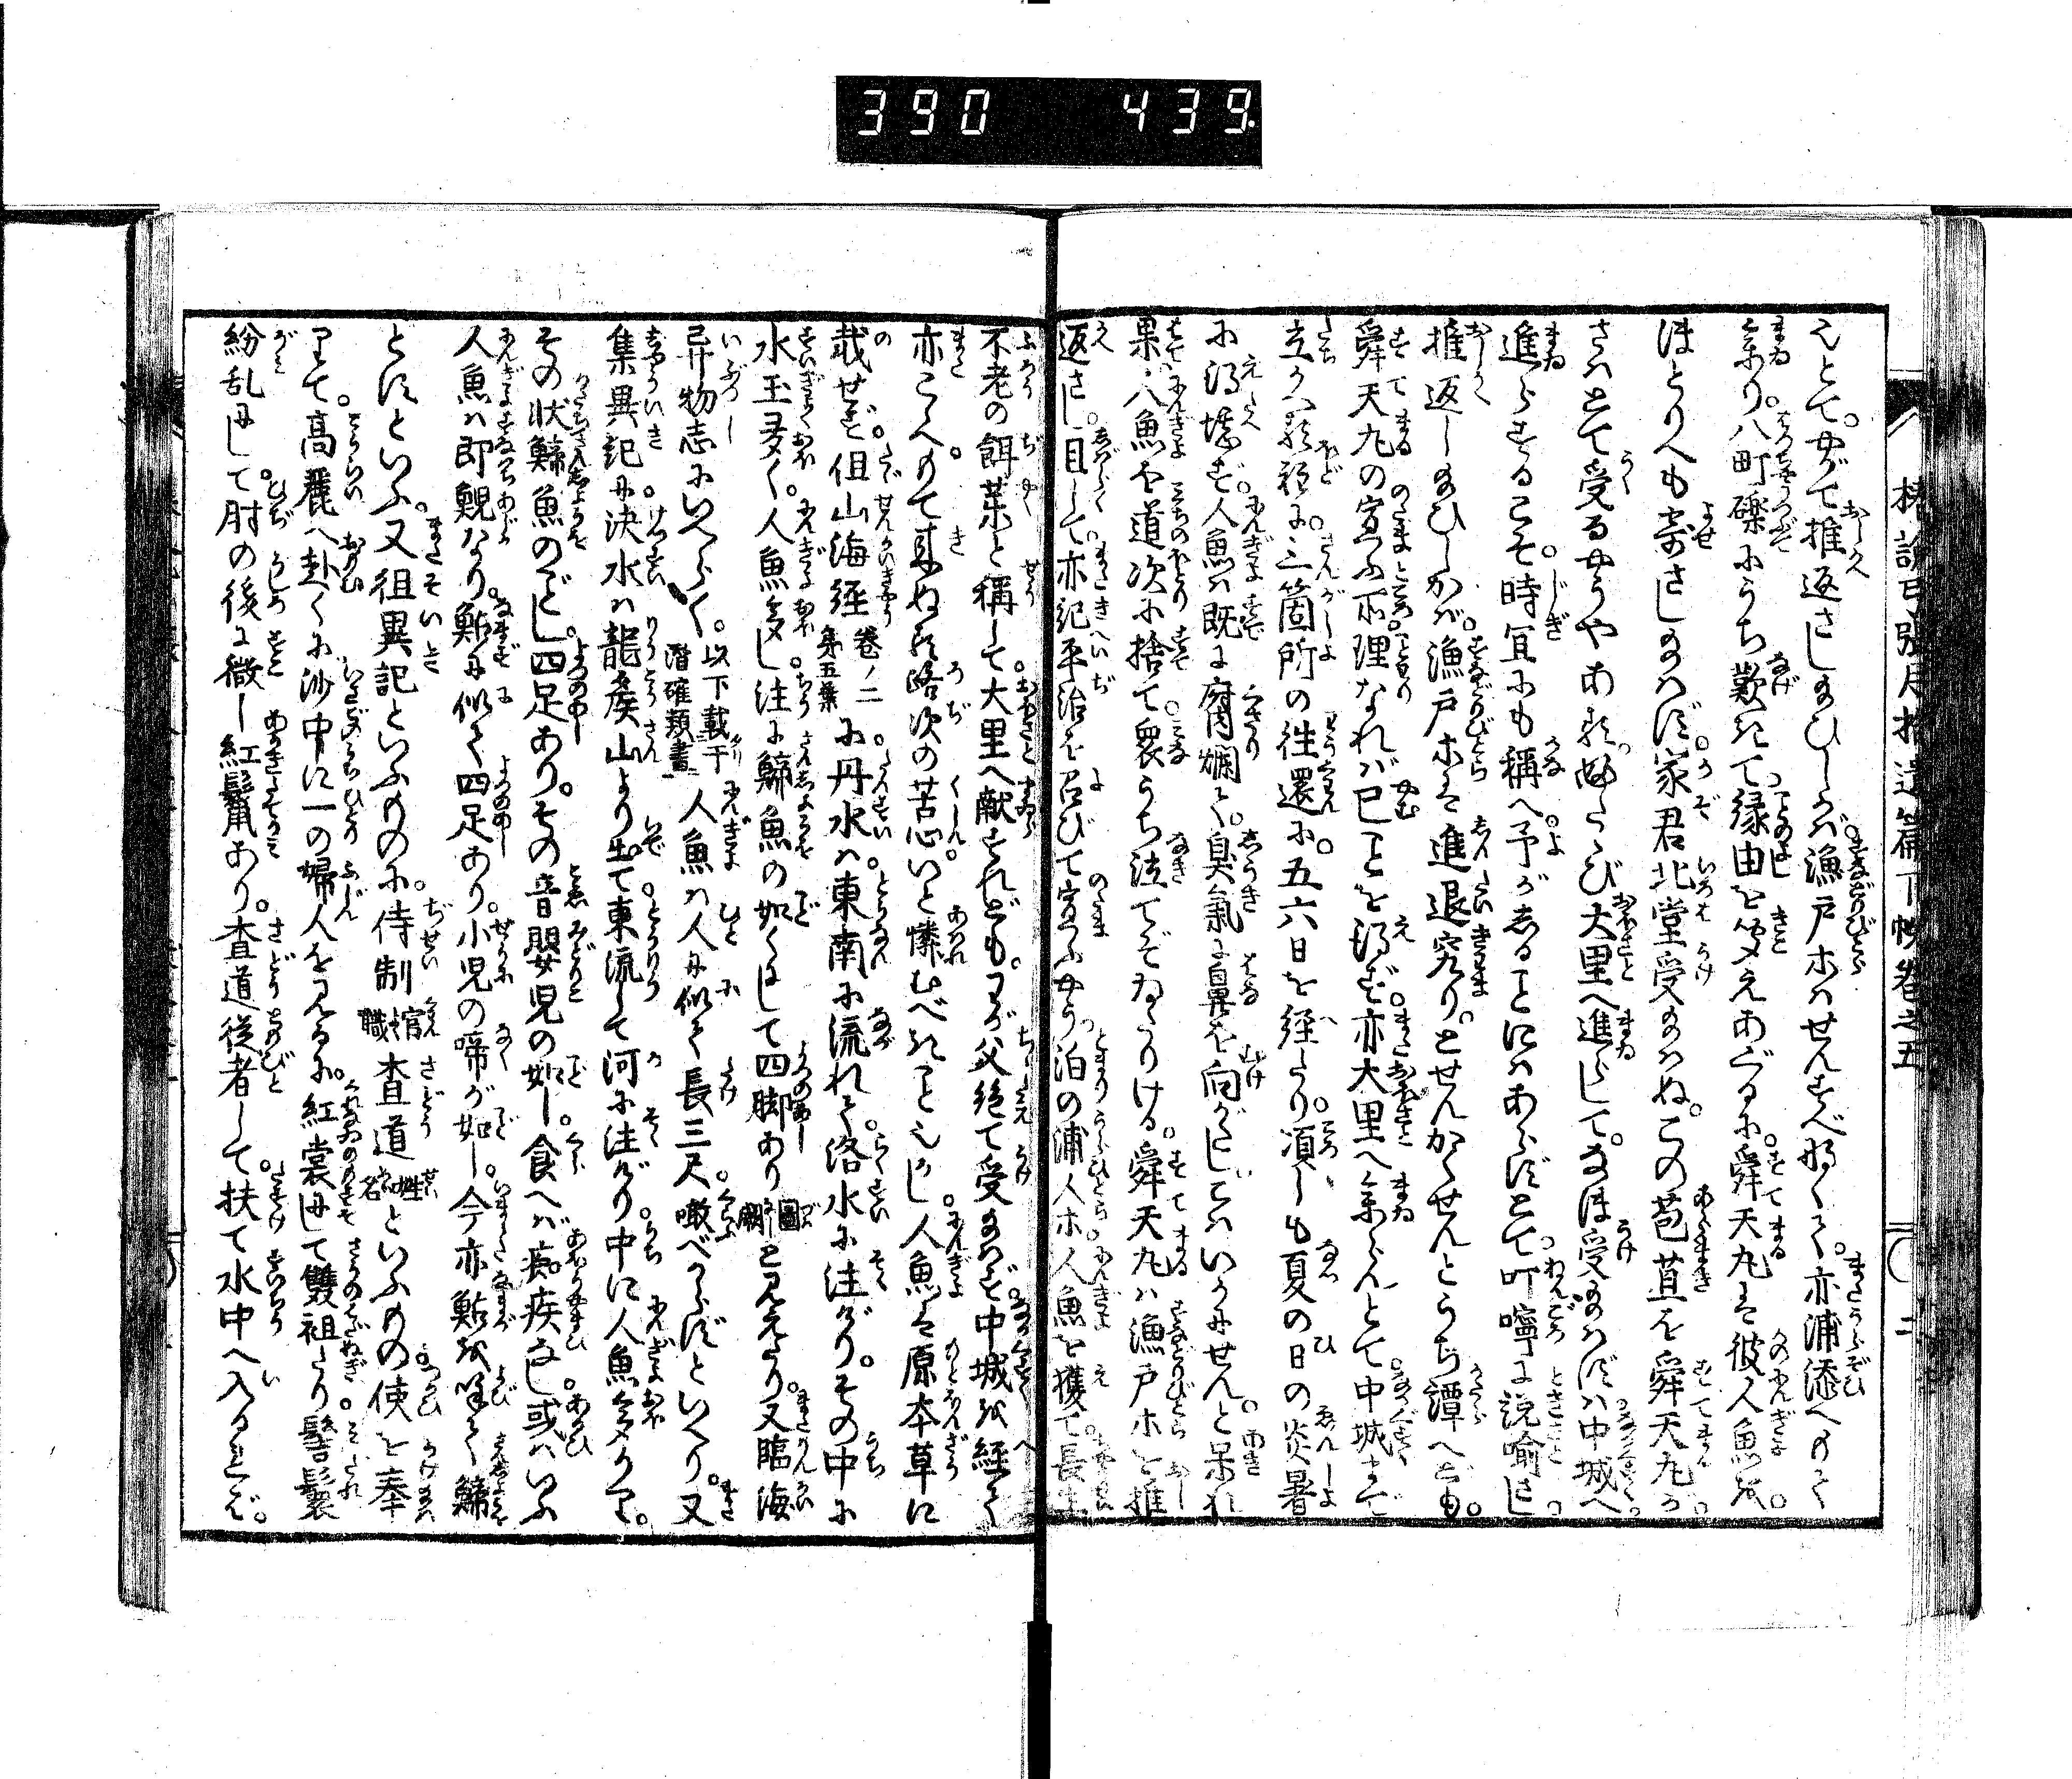 390 439.
椿説弓張月拾遺篇下帙巻之五 二
えとて。やがて推返さし給ひしかば漁戸ホはせんすべなくて。亦浦添へのて
参り。八町礫にうち歎きて縁由を聞えあぐるに。舜天丸は彼人魚を。
ほとりへも寄さし給はず。家君北堂受給はぬ。この苞苴を舜天丸が。
さはとて受るやうやあるふたゝび大里へ進らして。なほ受給はずは中城へ
進らするこそ。時宜にも稱へ。予がしることにはあらずとて。叮嚀に説喻し。
推返し給ひしかば。漁戸ホは進退究り。とせんかくせんとうち譚へども。
舜天丸の宣ふ所理なれば已ことを得ず。亦大里へ参らんとて。中城まで
立かへる程に。三箇所の徃還に。五六日を經たり。頃しも夏の日の炎暑
に得堪ず。人魚は既に腐爛て。臭氣に鼻を向がたしこはいかにせん。と呆れ
果。人魚を道次に捨て。衆うち泣てぞゐたりける。舜天丸は漁戸ホを推
返さし。目して。亦紀平治を召びて宣ふやう。泊の浦人ホ人魚を獲て。長生
不老の餌薬と稱して。大里へ獻すれども。わが父絶て受給はず。中城を經て
亦こゝへのて來ぬる路次の苦心。いと憐むべきことゝえかし。人魚は原本草に
載せず。但山海經 巻ノ二 第五葉 に。丹水は。東南に流れて。洛水に注げり。その中に
水玉多く。人魚多し。注に鯑魚の如くにして四脚あり 圖闕 と見えたり。又臨海
异物志にいへらく。 以下載于 潜確類書 人魚は人に似て長三尺。噉べからずといへり。又
集異記に。決水は龍矦山より出て。東流して河に注げり。中に人魚多くて。
その状鯑魚のごとし。四足あり。その音嬰児の如し。食へば痴疾なし。或はいふ
人魚は即鯢なり。鮎に似て四足あり。小児の啼が如し。今亦鮎を呼て鯑
とにといふ。又徂異記といふものに。待制 官職 査道 姓名 といふもの使を奉
りて。高麗へ赴くに沙中に一の婦人を見るに。紅裳にして雙袒たり髻鬟
紛乱にして。肘の後に微し紅鬣あり。査道從者して。扶て水中へ入るれば。